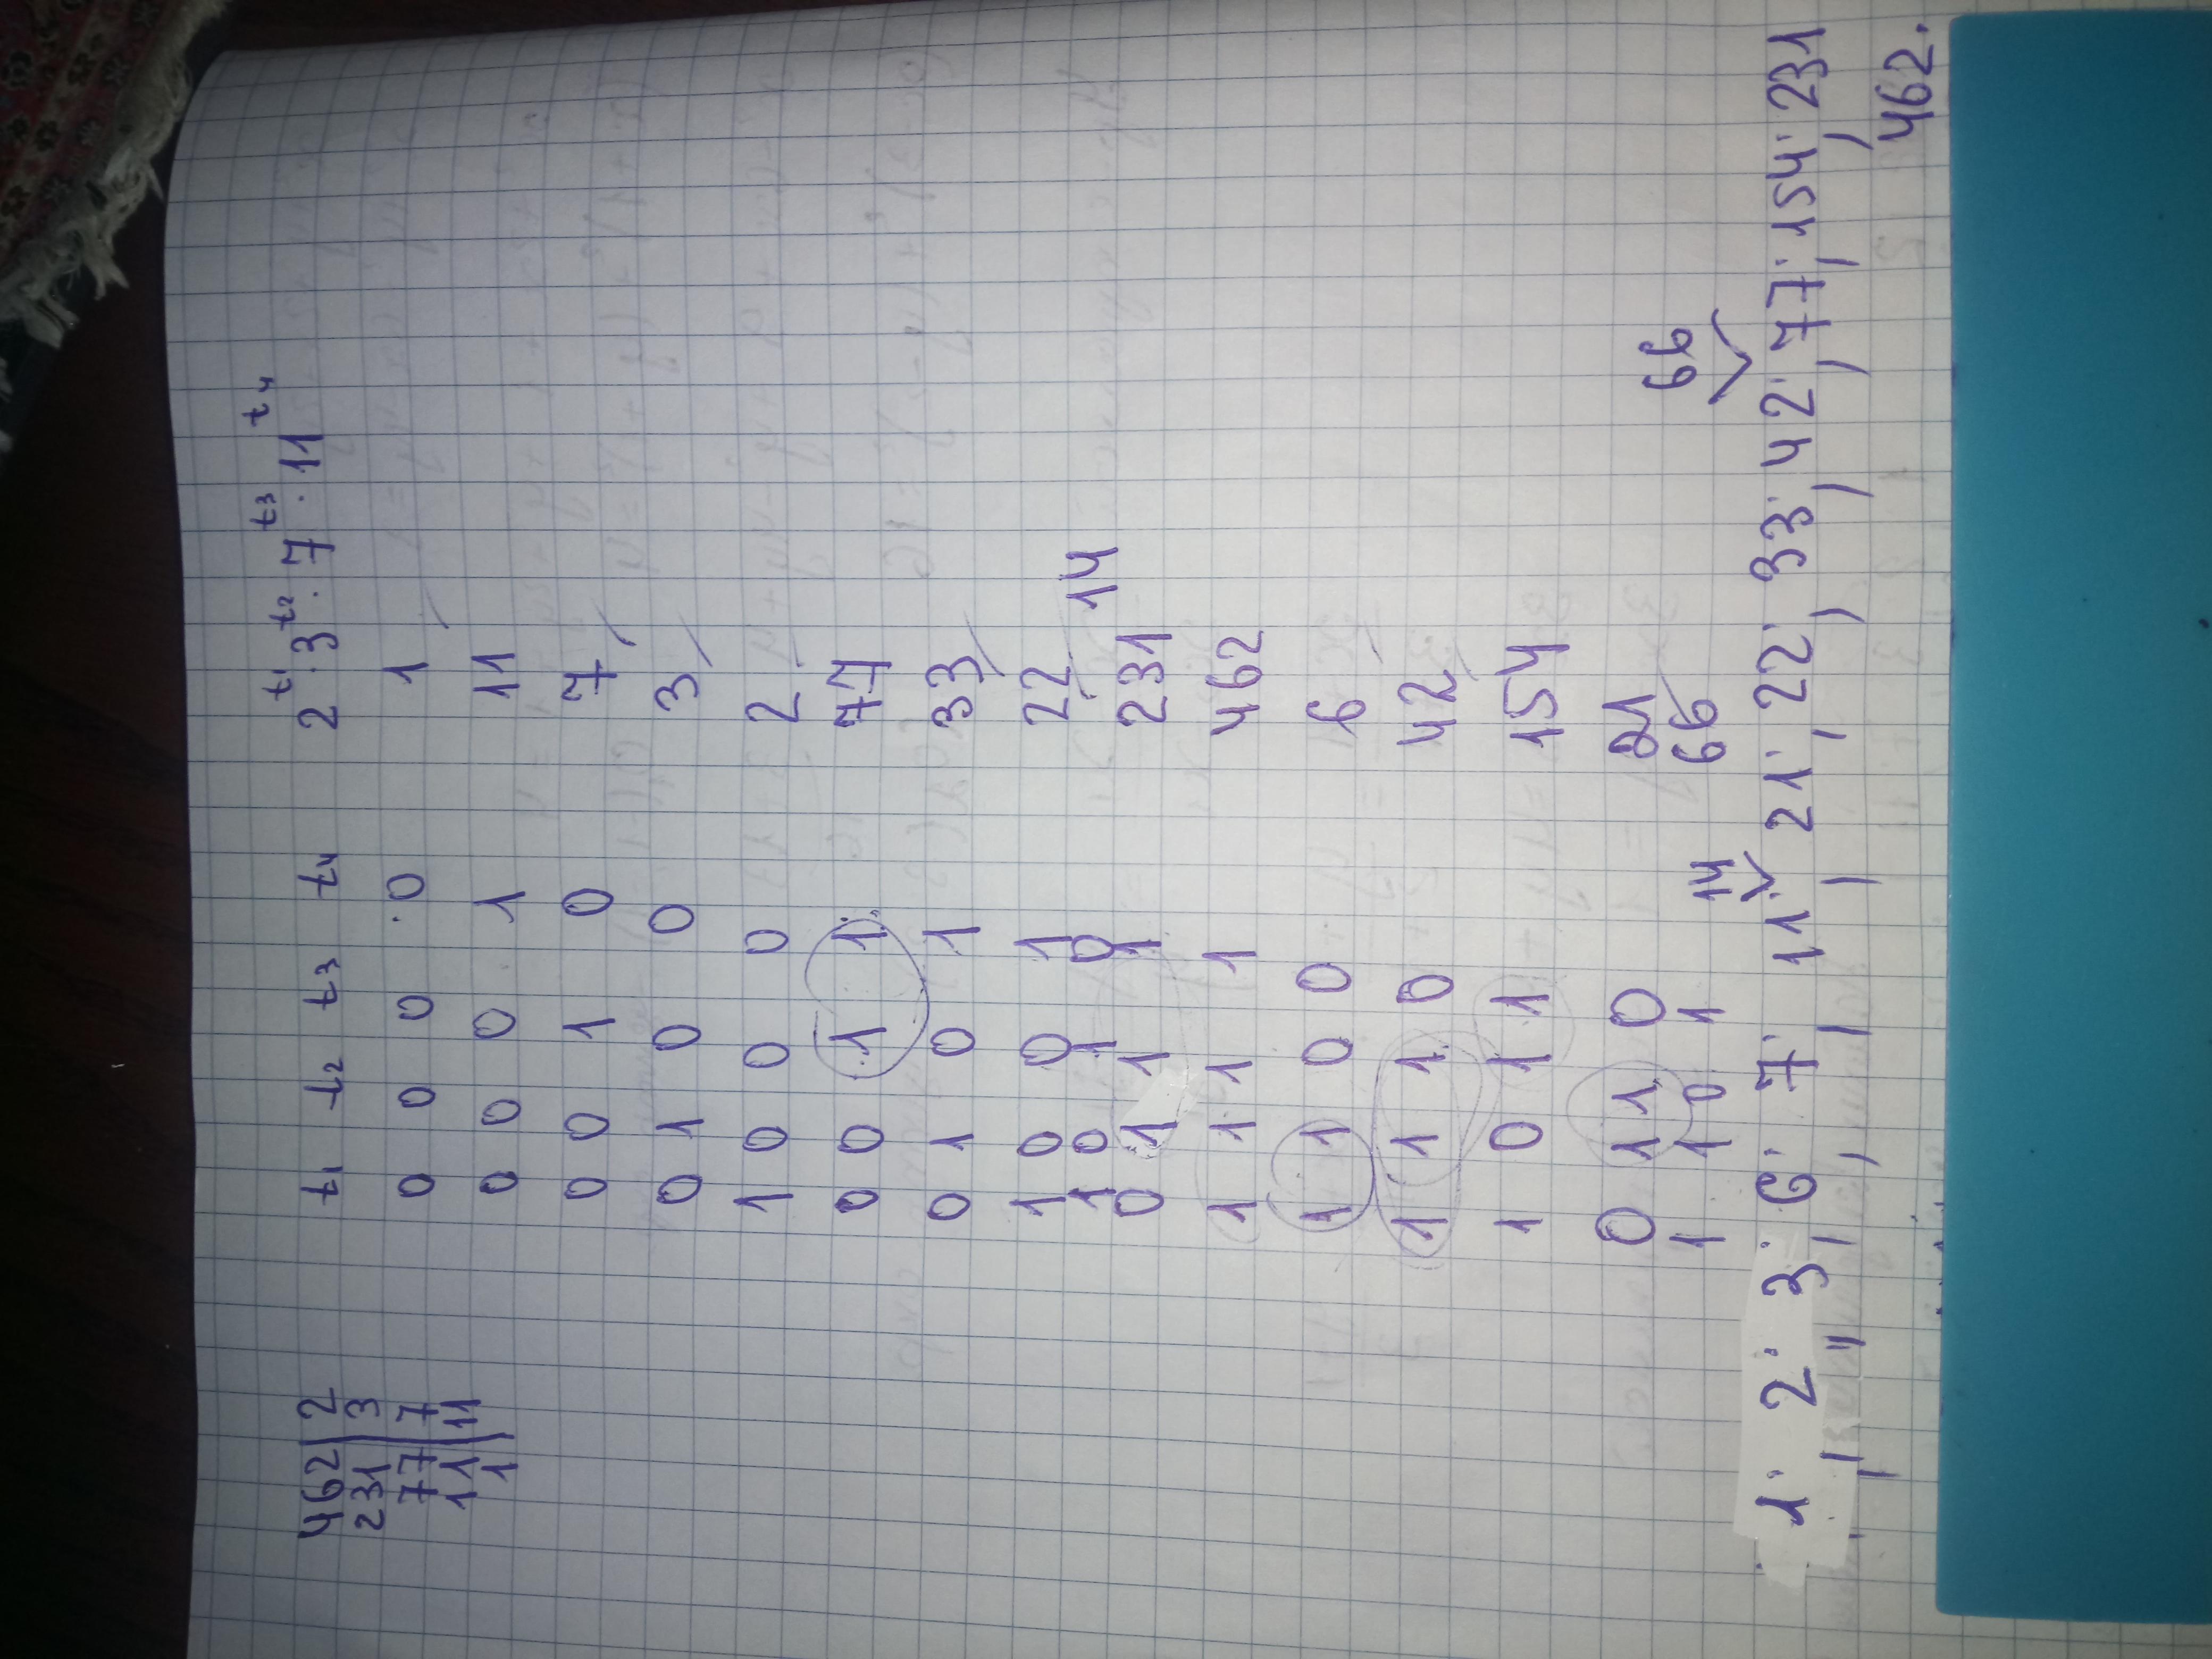 462 | 2
231 | 3
77 | 7
11 | 11
1
t1 t2 t3 t4 2^t1 · 3^t2 · 7^t3 · 11^t4
0 0 0 0 1
0 0 0 1 11
0 0 1 0 7
0 1 0 0 3
1 0 0 0 2
0 0 1 1 77
0 1 0 1 33
1 0 0 1 22
1 0 1 0 14
0 1 1 1 231
1 1 1 1 462
1 1 0 0 6
1 1 1 0 42
1 0 1 1 154
0 1 1 0 21
1 1 0 1 66
14 66
1; 2; 3; 6; 7; 11; 21; 22; 33; 42; 77; 154; 231
462.